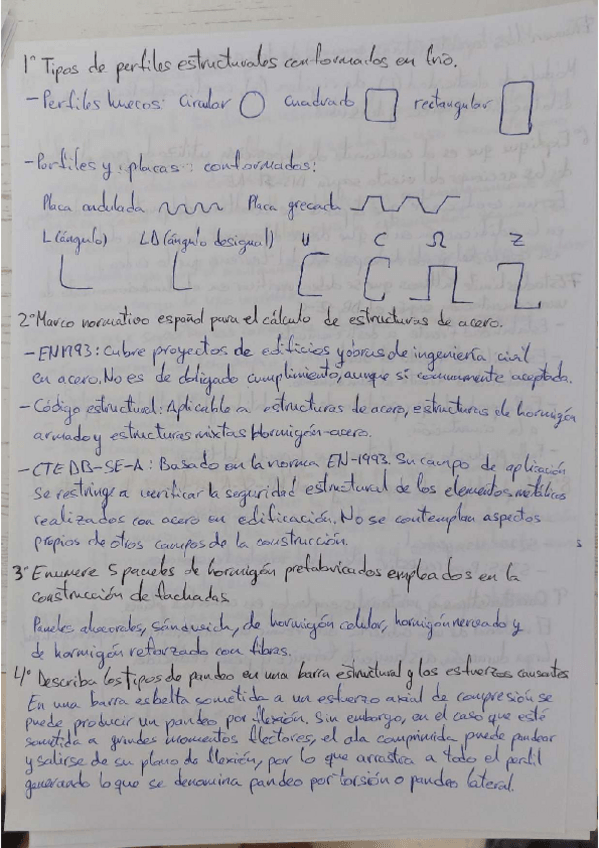 1º Tipos de perfiles estructurales conformados en frío.
- Perfiles huecos: circular cuadrado rectangular
- Perfiles y placas conformados:
Placa ondulada Placa grecada
L(ángulo) LD(ángulo desigual) U C Ω Z
2º Marco normativo español para el cálculo de estructuras de acero.
- EN1993: Cubre proyectos de edificios y obras de ingeniería civil
en acero. No es de obligado cumplimiento, aunque si comunmente aceptada.
- Código estructural: Aplicable a estructuras de acero, estructuras de hormigón
armado y estructuras mixtas Hormigón-acero.
- CTE DB-SE-A: Basado en la norma EN-1993. Su campo de aplicación
se restringe a verificar la seguridad estructural de los elementos metálicos
realizados con acero en edificación. No se contemplan aspectos
propios de otros campos de la construcción.
3º Enumere 5 paneles de hormigón prefabricados empleados en la
construcción de fachadas
Paneles alveolares, sándwich, de hormigón celular, hormigón nervado y
de hormigón reforzado con fibras.
4º Describa los tipos de pandeo en una barra estructural y los esfuerzos causantes
En una barra esbelta sometida a un esfuerzo axial de compresión se
puede producir un pandeo por flexión. Sin embargo, en el caso que esté
sometida a grandes momentos flectores, el ala comprimida puede pandear
y salirse de su plano de flexión, por lo que arrastra a todo el perfil
generando lo que se denomina pandeo por torsión o pandeo lateral.